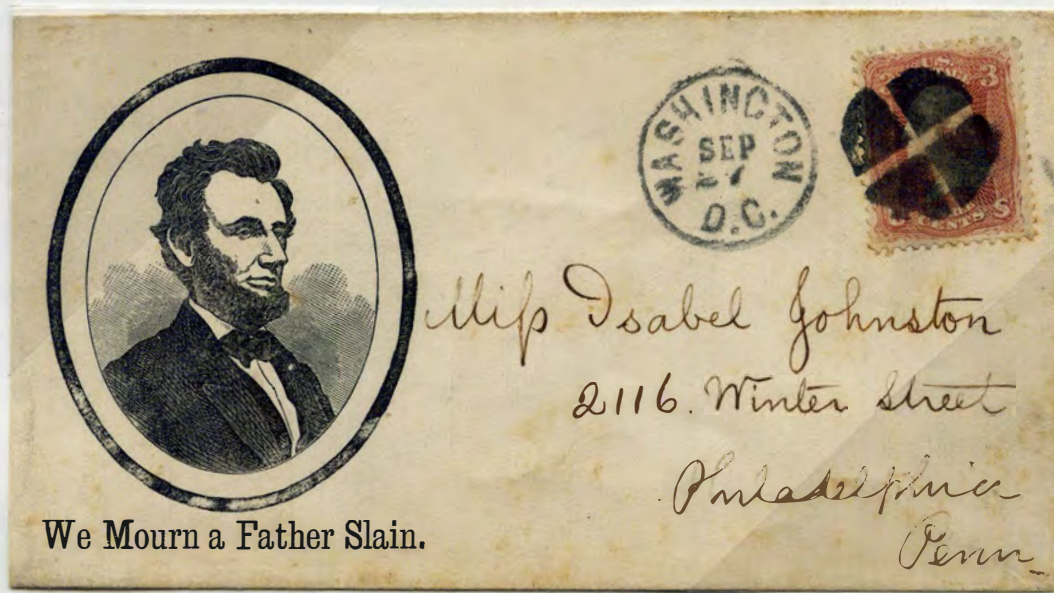 WASHINGTON
SEP
D.C.
3
Miſs Isabel Johnston
2116. Winter Street
Philadelphia
Penn
We Mourn a Father Slain.